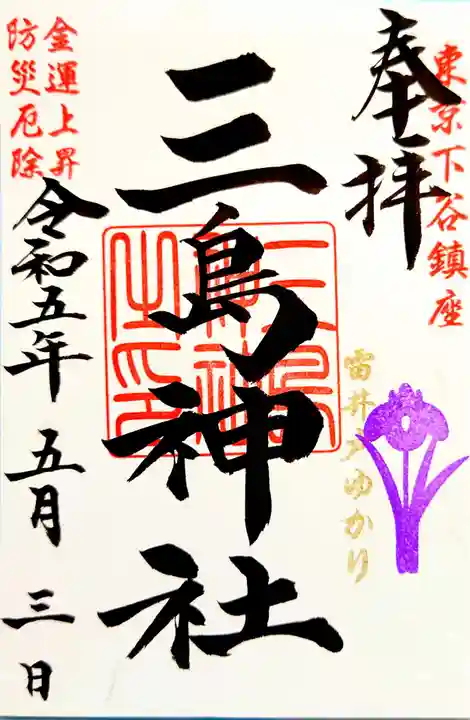 東京下谷鎮座
奉拝
雷井戸ゆかり
三島神社
金運上昇
防災厄除
令和五年 五月 三日